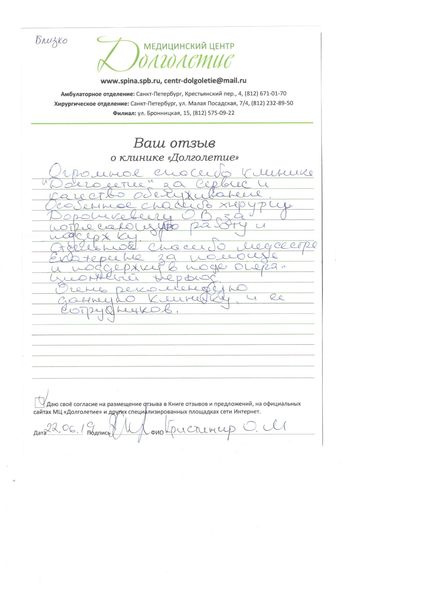 Близко
МЕДИЦИНСКИЙ ЦЕНТР
Долголетие
www.spina.spb.ru, centr-dolgoletie@mail.ru
Амбулаторное отделение: Санкт-Петербург, Крестьянский пер., 4, (812) 671-01-70
Хирургическое отделение: Санкт-Петербург, ул. Малая Посадская, 7/4, (812) 232-89-50
Филиал: ул. Бронницкая, 15, (812) 575-09-22
Ваш отзыв
о клинике «Долголетие»
Огромное спасибо клинике
"Долголетие" за сервис и
качество обслуживание
Особенное спасибо хирургу
Дорошкевичу О.В. за
потрясающую работу и
поддержку
Отдельное спасибо медсестре
Екатерине за помощь
и поддержку в после опера-
ционный период
Очень рекомендую
данную клинику и ее
сотрудников.
Даю своё согласие на размещение отзыва в Книге отзывов и предложений, на официальных
сайтах МЦ «Долголетие» и других специализированных площадках сети Интернет.
Дата 22.06.19 Подпись ФИО О.М